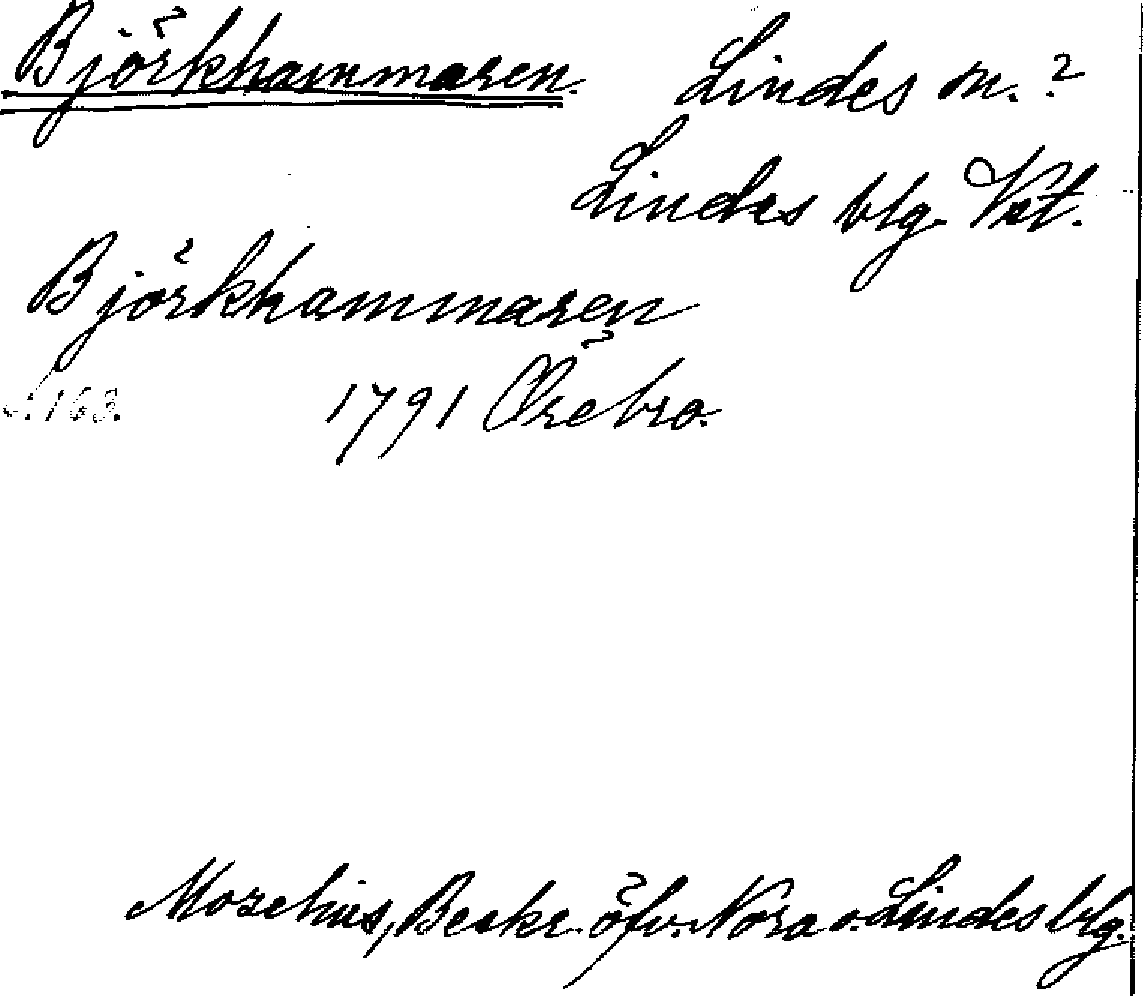 Björkhammaren. Lindes sn.?
Lindes blg. Vst.
Björkhammaren
s. 163. 1791 Örebro.
Mozelius, Beskr. öfv. Nora o. Lindes blg.